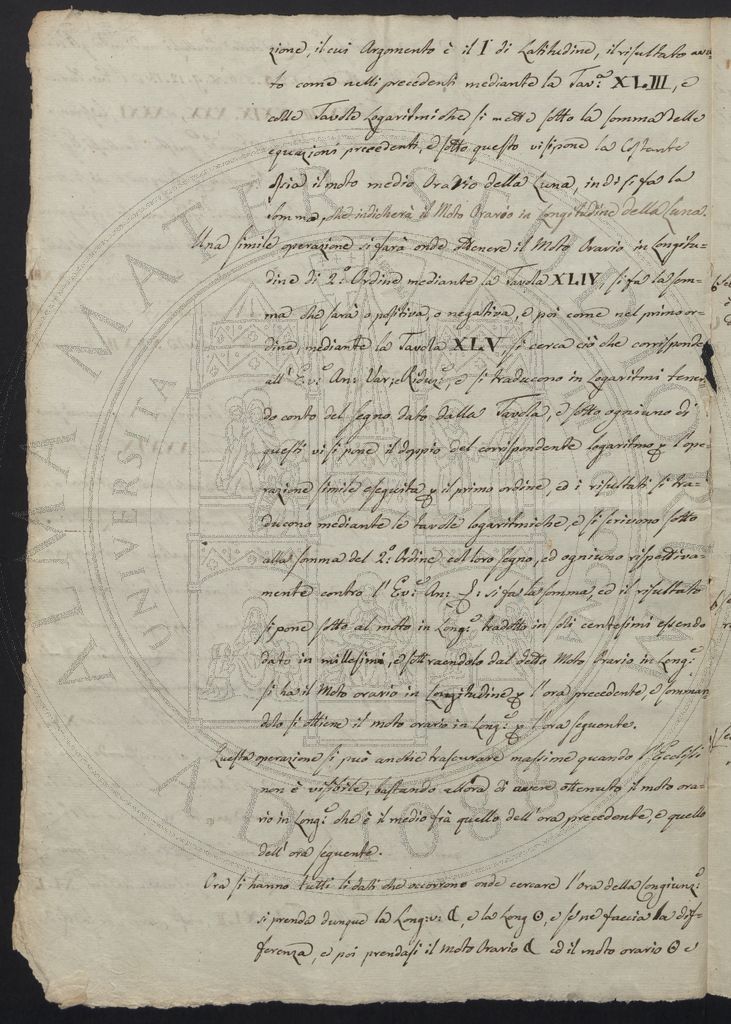 zione, il cui Argomento è il I di Latitudine, il risultato avu-
to come nelli precedenti mediante la Tav.ª XLIII, e
colle Tavole Logaritmiche si mette sotto la somma delle
equazioni precedenti, e sotto questo vi si pone la Costante
ossia il moto medio Orario della Luna, indi si fa la
somma, che indicherà il Moto Orario in Longitudine della Luna.
Una simile operazione si farà onde ottenere il Moto Orario in Longitu-
dine di 2.º Ordine mediante la Tavola XLIV, si fa la som-
ma che sarà o positiva, o negativa, e poi come nel primo or-
dine, mediante la Tavola XLV si cerca ciò che corrisponde
all' Ev: An: Var: Riduz:, e si traducono in Logaritmi tenen-
do conto del segno dato dalla Tavola, e sotto ogniuno di
questi vi si pone il doppio del corrispondente logaritmo p l'ope-
razione simile eseguita p il primo ordine, ed i risultati si tra-
ducono mediante le tavole logaritmiche, e si scrivono sotto
alla somma del 2.º Ordine col loro segno, ed ogniuno rispettiva-
mente contro l' Ev: An: si fa la somma, ed il risultato
si pone sotto al moto in Long: tradotto in soli centesimi essendo
dato in millesimi, e sottraendolo dal detto Moto Orario in Long:
si ha il Moto orario in Longitudine p l'ora precedente, e somman-
dolo si ottiene il moto orario in Long: p l'ora seguente.
Questa operazione si può anche trascurare massime quando l'Ecclissi
non è visibile, bastando allora di avere ottenuto il moto ora-
rio in Long: che è il medio frà quello dell'ora precedente, e quello
dell'ora seguente.
Ora si hanno tutti li dati che occorrono onde cercare l'ora della Congiunz:
si prenda dunque la Long: ☾, e la Long ☉, e se ne faccia la dif-
ferenza, e poi prendasi il Moto Orario ☾ ed il moto orario ☉ e
ALMA MATER STUDIORUM
UNIVERSITA
A.D. 1088